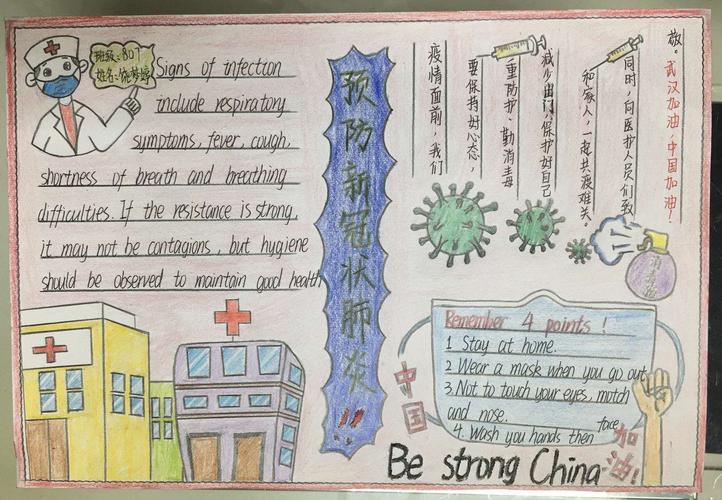 班级:807
姓名:饶梦婷
Signs of infection
include respiratory
symptoms, fever, cough,
shortness of breath and breathing
difficulties. If the resistance is strong,
it may not be contagions , but hygiene
should be observed to maintain good health
预防新冠状肺炎!!
疫情面前,我们
要保持好心态,
重防护、勤消毒
减少出门,保护好自己
和家人,一起共渡难关。
同时,向医护人员们致
敬。武汉加油,中国加油!
Remember 4 points !
1 Stay at home.
2 Wear a mask when you go out
3. Not to touch your eyes, motch
and nose.
4. Wash you hands then face
中国
加油!
Be strong China